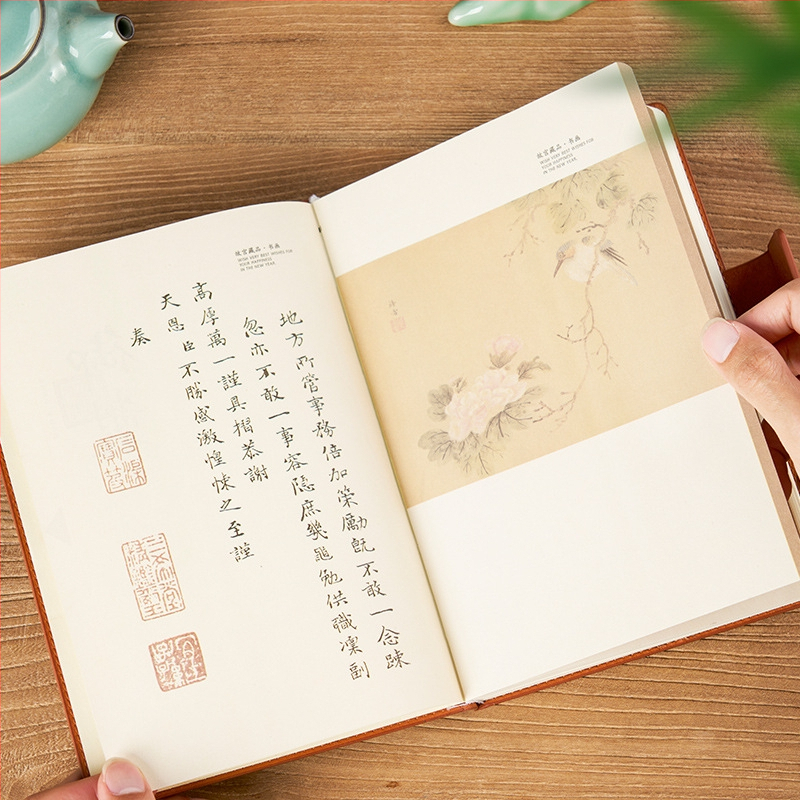 故宫藏品·书画
WISH VERY BEST WISHES FOR
YOUR HAPPINESS
IN THE NEW YEAR.
地方所管事務倍加策勵既不敢一念踈
忽亦不敢一事容隱庶幾黽勉供職凜副
高厚萬一謹具摺恭謝
天恩臣不勝感激惶悚之至謹
奏
故宫藏品·书画
WISH VERY BEST WISHES FOR
YOUR HAPPINESS
IN THE NEW YEAR.